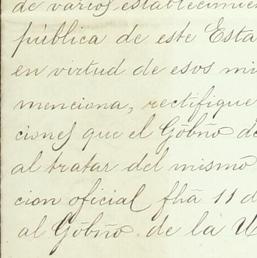 de varios establecimie
pública de este Esta
en virtud de esos mi
menciona, rectifique
ciones que el Gobno de
al tratar del mismo
cion oficial fhã 11 d
al Gobno. de la U